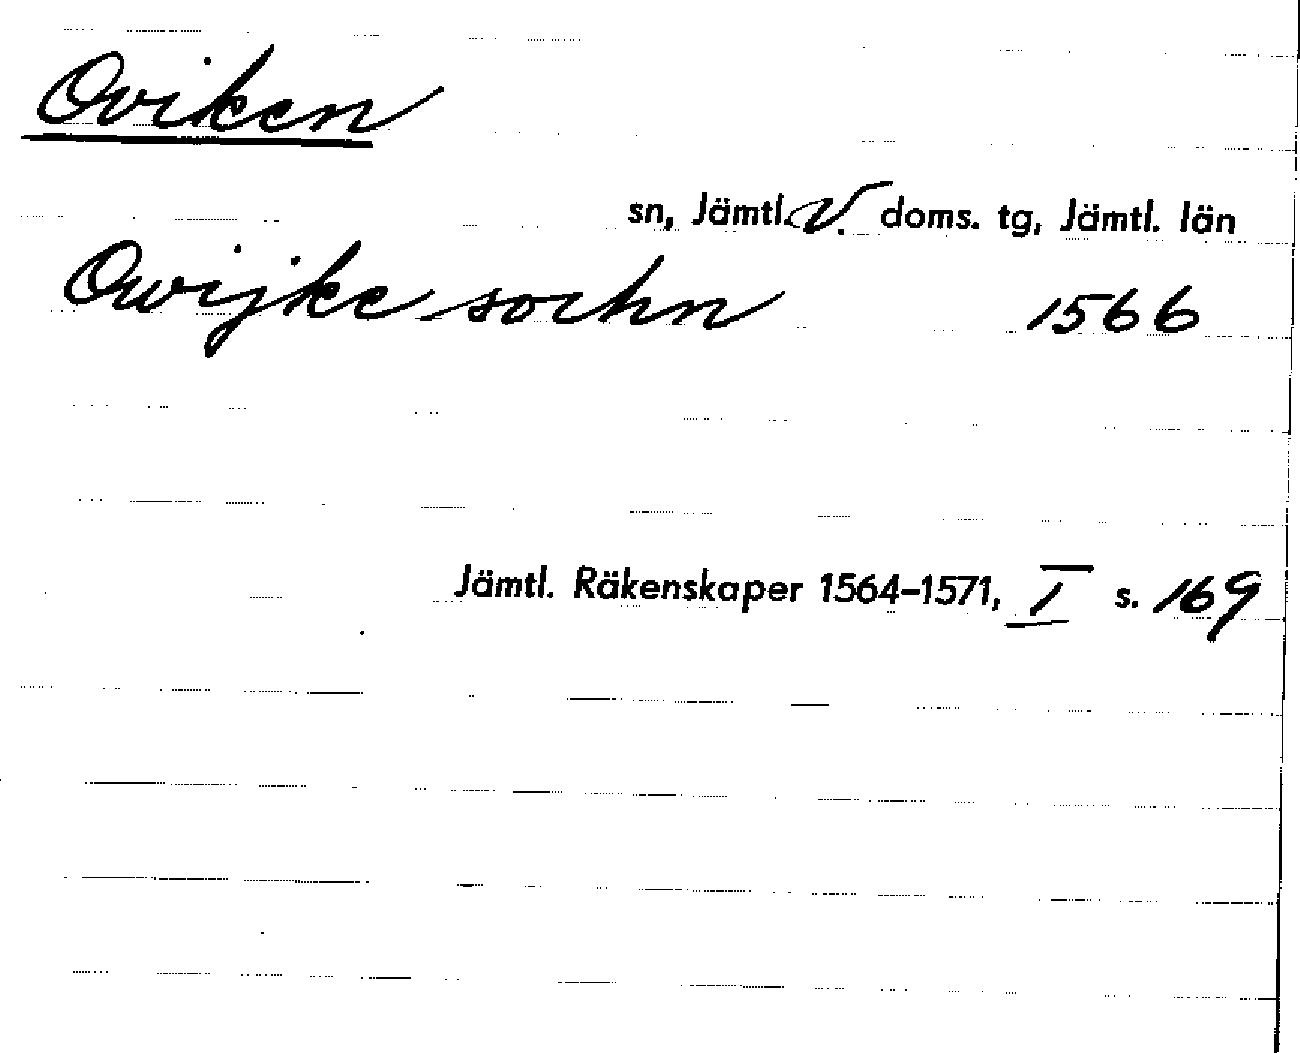 Oviken
sn, Jämtl. V. doms. tg, Jämtl. län
Owijke sochn 1566
Jämtl. Räkenskaper 1564–1571, I s. 169